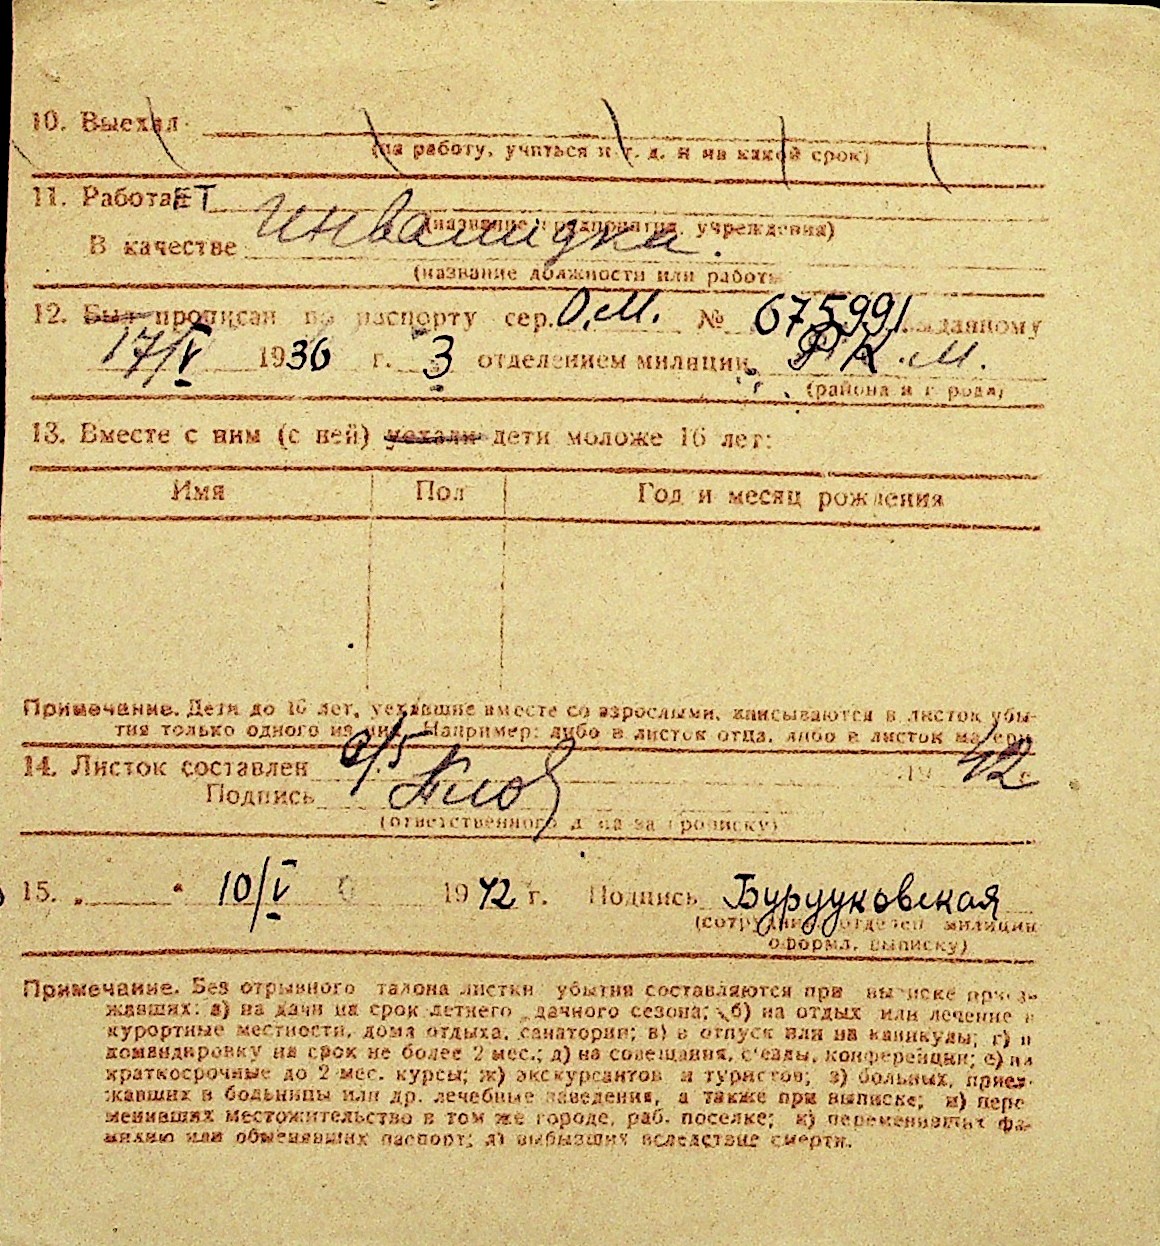 10. Выехал
(на работу, учиться и т. д. и на какой срок)
11. РаботаЕТ
(название предприятия, учреждения)
В качестве инвалидка.
(название должности или работы
12. Был прописан по паспорту сер. О.М. № 675991 выданному
17/V 1936 г. 3 отделением милиции Р.К.М.
(района и города)
13. Вместе с ним (с ней) уехали дети моложе 16 лет:
Имя Пол Год и месяц рождения
Примечание. Дети до 16 лет, уехавшие вместе со взрослыми, вписываются в листок убы-
тия только одного из них. Например: либо в листок отца, либо в листок матери
14. Листок составлен 9/5 1942 г.
Подпись
(ответственного лица за прописку)
15. „ “ 10/V 1942 г. Подпись
(сотрудник отделен милиции
оформл. выписку)
Примечание. Без отрывного талона листки убытия составляются при выписке приез-
жавших: а) на дачи на срок летнего дачного сезона; б) на отдых или лечение в
курортные местности, дома отдыха, санатории; в) в отпуск или на каникулы; г) в
командировку на срок не более 2 мес.; д) на совещания, с'езды, конференции; е) на
краткосрочные до 2 мес. курсы; ж) экскурсантов и туристов; з) больных, приез-
жавших в больницы или др. лечебные заведения, а также при выписке; и) пере-
менивших местожительство в том же городе, раб. поселке; к) переменивших фа-
милию или обменявших паспорт; л) выбывших вследствие смерти.